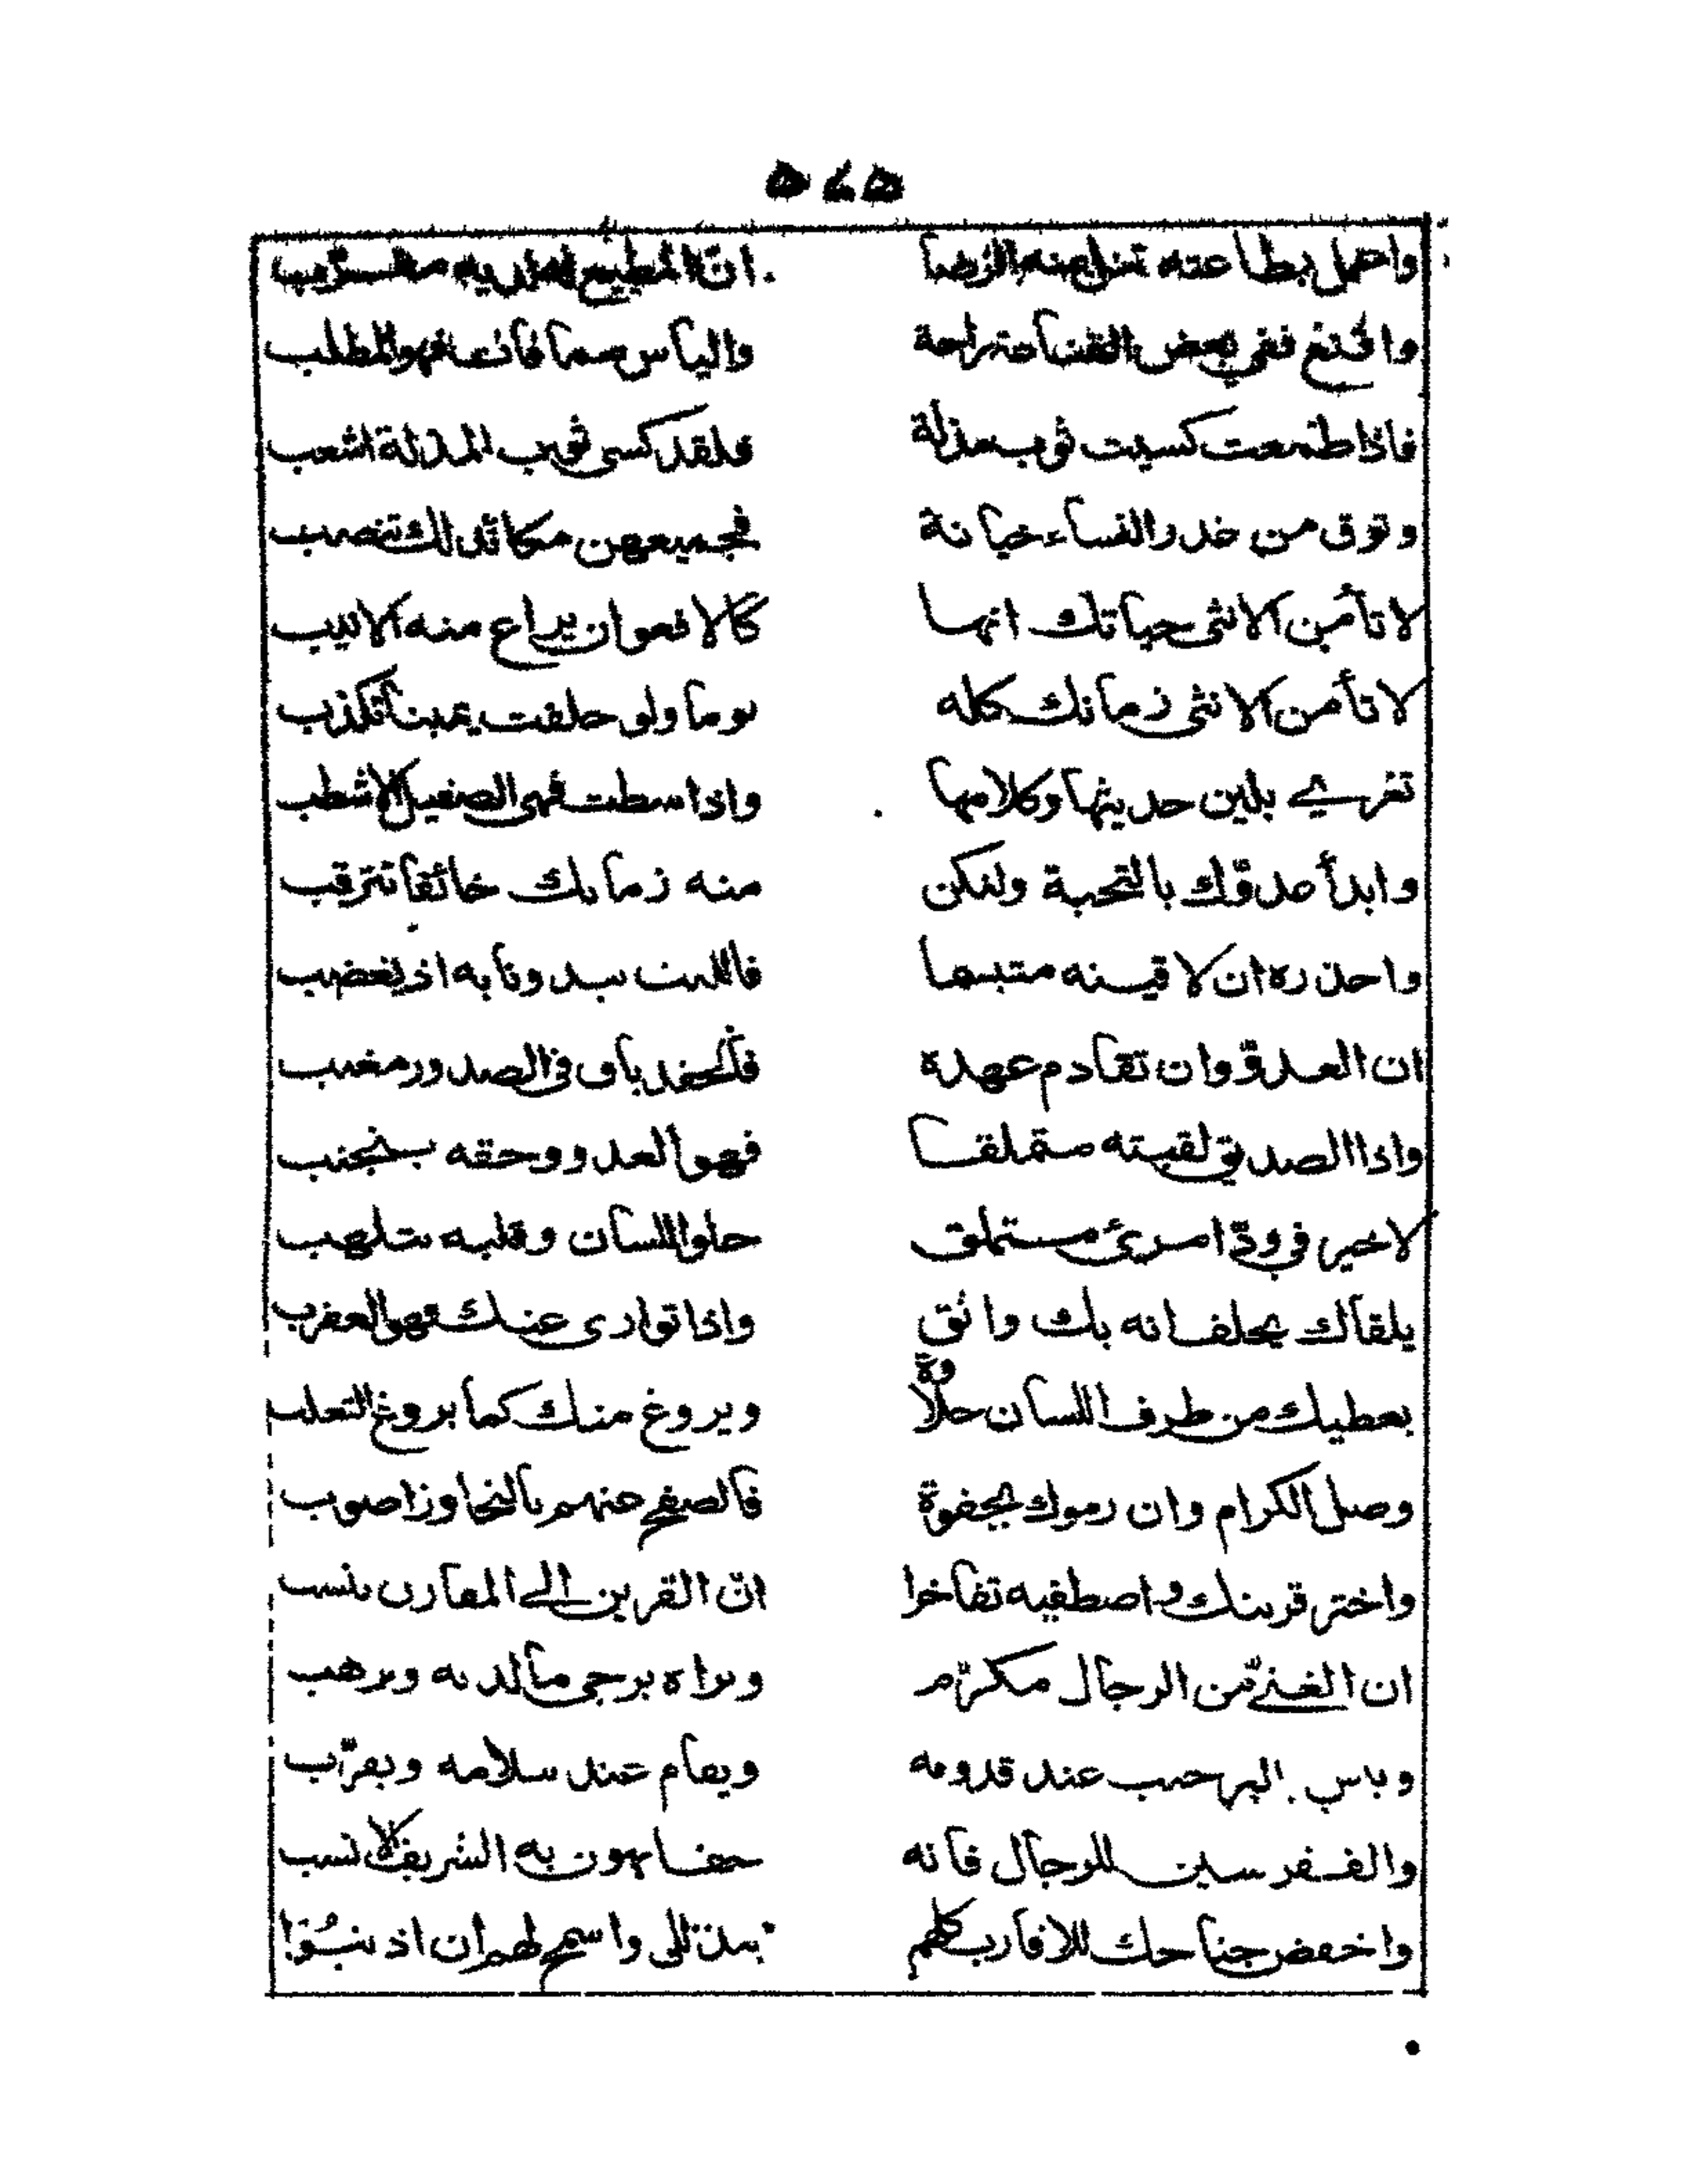 ٥٧٥
واعمل بطاعته تنل منه الرضا ان المطيع لربه مقرب
واقنع ففي بعض القناعة راحة والياس عما فات فهو المطلب
فاذا طمعت كسيت ثوب مذلة فلقد كسى ثوب المذلة اشعب
وتوق من غدر النساء خيانة فجميعهن مكائد لك تنصب
لا تأمن الانثى حياتك انها كالافعوان يراع منه الانيب
لا تأمن الانثى زمانك كله يوما ولو حلفت يمينا تكذب
تغري بلين حديثها وكلامها واذا سطت فهي الصقيل الاشطب
وابدأ عدوّك بالتحية ولتكن منه زمانك خائفا تترقب
واحذره ان لاقيته متبسما فالليث يبدو نابه اذ يغضب
ان العدوّ وان تقادم عهده فالحقد باق في الصدور مغيب
واذا الصديق لقيته متملقا فهو العدو وحقه يتجنب
لا خير في ودّ امرئ متملق حلو اللسان وقلبه يتلهب
يلقاك يحلف انه بك واثق واذا توارى عنك فهو العقرب
يعطيك من طرف اللسان حلاوة ويروغ منك كما يروغ الثعلب
وصل الكرام وان رموك بجفوة فالصفح عنهم بالتجاوز اصوب
واختر قرينك واصطفيه تفاخرا انّ القرين الى المقارن ينسب
ان الغنيّ من الرجال مكرّم وتراه يرجى ما لديه ويرهب
ويبش بالترحيب عند قدومه ويقام عند سلامه ويقرّب
والفقر شين للرجال فانه حقا يهون به الشريف الانسب
واخفض جناحك للاقارب كلهم بتذلل واسمح لهم ان اذنبُوا